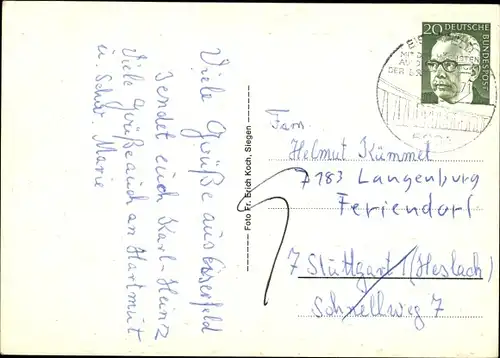 Viele Grüße aus Eiserfeld
sendet euch Karl-Heinz
Viele Grüße auch an Hartmut
u. Schw. Marie
Foto Fr. Erich Koch, Siegen
20
DEUTSCHE
BUNDESPOST
Fam.
Helmut Kümmet
7183 Langenburg
Feriendorf
7 Stuttgart 1 (Heslach)
Schnellweg 7